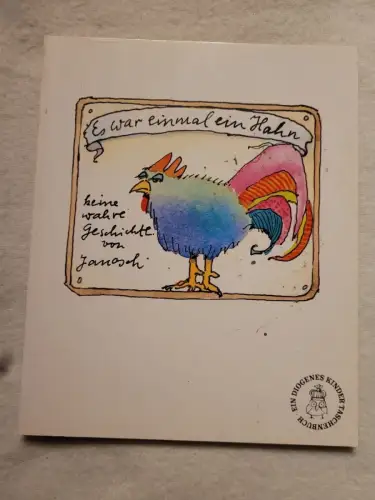 Es war einmal ein Hahn
keine
wahre
Geschichte
von
Janosch
EIN DIOGENES KINDER TASCHENBUCH